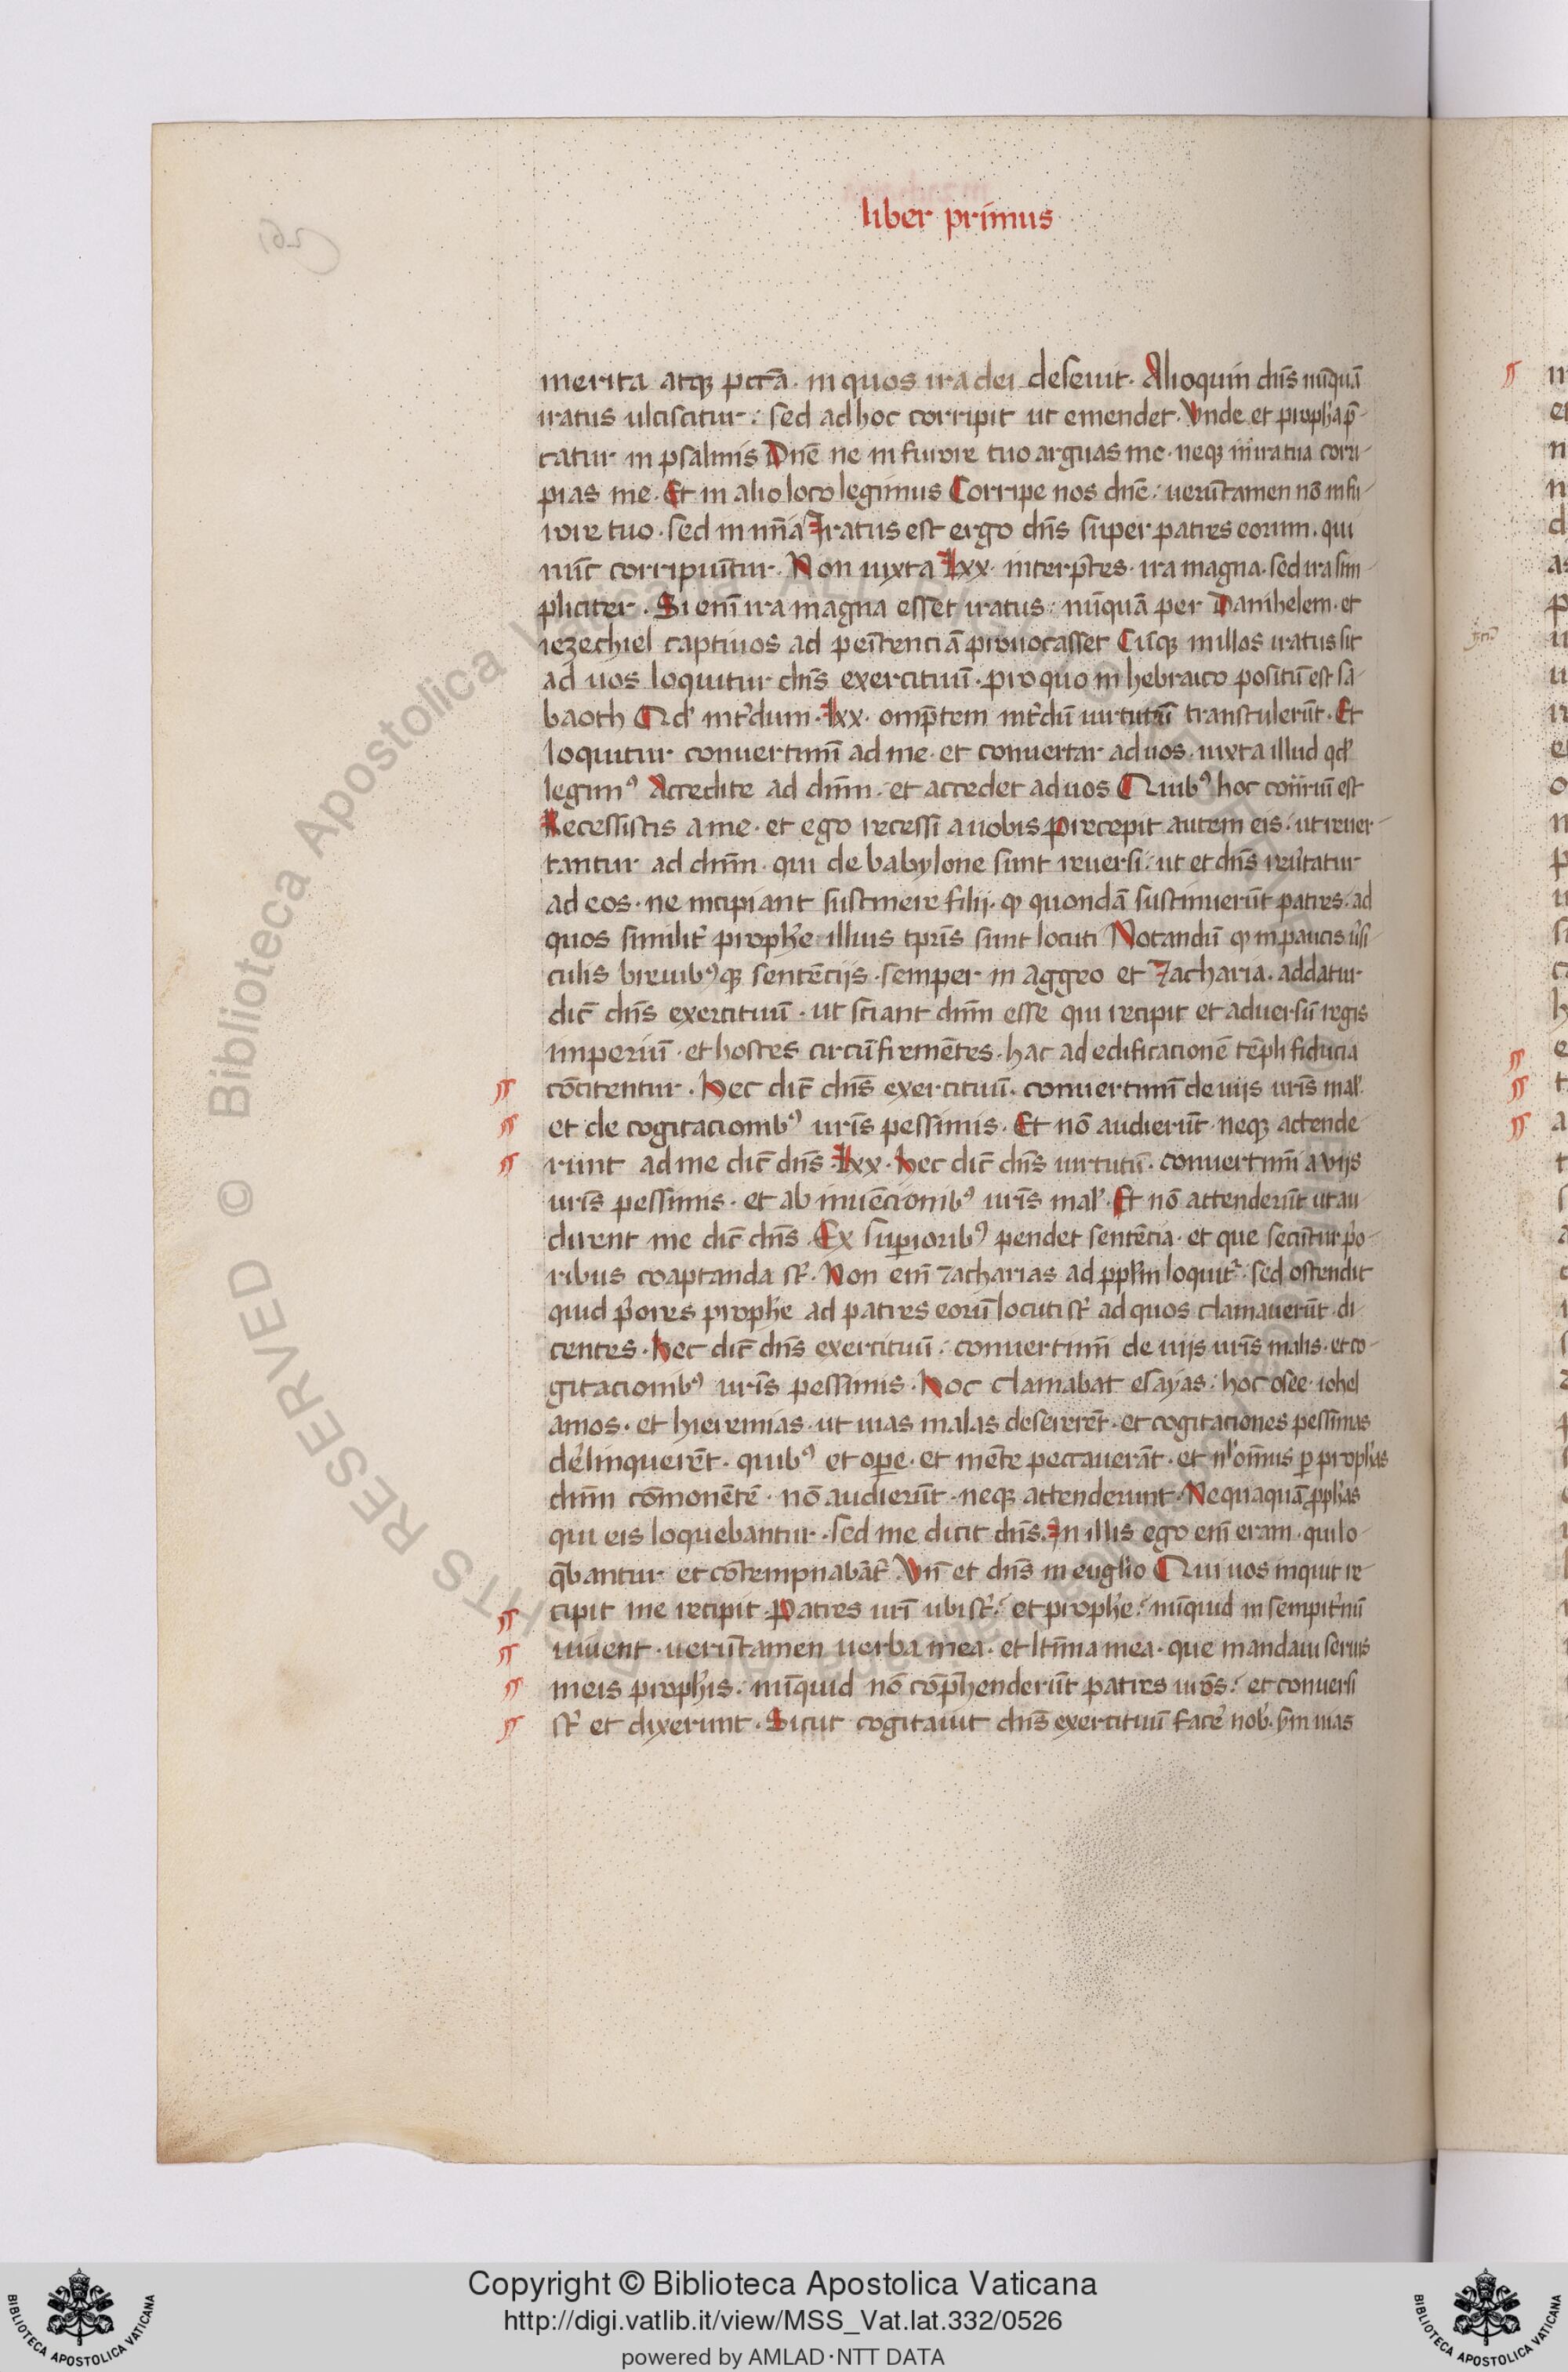 liber primus
merita atqꝫ pctā· in quos ira dei deseuit· Alioquin dn̄s nūquā
iratus ulciscitur· sed ad hoc corripit ut emendet· Vnde et propha p̄-
catur in psalmis Dn̄e ne in furore tuo arguas me· neqꝫ in ira tua corri-
pias me· Et in alio loco legimus Corripe nos dn̄e· uerūtamen nō in fu-
rore tuo· sed in mīa Iratus est ergo dn̄s super patres eorum· qui
nūc corripiuntur· Non iuxta lxx· interp̄tes· ira magna· sed ira sim-
pliciter· Si enī ira magna esset iratus· nūquā per Danihelem· et
iezechiel captiuos ad penitentiā prouocasset Cūqꝫ in illos iratus sit
ad uos loquitur dn̄s exercituū· pro quo in hebraico positū est sa-
baoth Qd' int'dum· lxx· omp̄tem int'dū uirtutū transtulerūt· Et
loquitur conuertimī ad me· et conuertar ad uos· iuxta illud qd'
legimꝰ Accedite ad dn̄m· et accedet ad uos Quibꝰ hoc contrariū est
Recessistis a me· et ego recessi a uobis Precepit autem eis· ut reuer-
tantur ad dn̄m· qui de babylone sunt reuersi· ut et dn̄s reu'tatur
ad eos· ne incipiant sustinere filij· qꝫ quondā sustinuerūt patres· ad
quos similit' prophe illius tp̄ris sunt locuti Notandū qꝫ in paucis u'si-
culis breuibꝰqꝫ sentēcijs· semper in aggeo et Zacharia· addatur
dic̄ dn̄s exercituū· ut sciant dn̄m esse qui recipit et aduersū regis
imperiū· et hostes circūfrementes· hac ad edificacionē tēpli fiducia
cōcitentur· Hec dic̄ dn̄s exercituū· conuertimī de uijs ur̄is mal'·
et de cogitacionibꝰ ur̄is pessimis· Et nō audierūt· neqꝫ actende
runt ad me dic̄ dn̄s· lxx· Hec dic̄ dn̄s uirtutū· conuertimī a vijs
ur̄is pessimis· et ab inuēcionibꝰ ur̄is mal'· Et nō attenderūt ut au
dirent me dic̄ dn̄s· Ex superioribꝰ pendet sentēcia· et que secūtur p'o-
ribus coaptanda st'· Non enī zacharias ad pplm loquit'· sed ostendit
quid p'ores prophe ad patres eorū locuti st' ad quos clamauerūt· di-
centes· Hec dic̄ dn̄s exercituū· conuertimī de uijs ur̄is malis· et co-
gitacionibꝰ ur̄is pessimis· Hoc clamabat esayas· hoc osee· iohel
amos· et hieremias· ut uias malas deserent· et cogitaciones pessimas
delinquerēt· quibꝰ et ope· et mēte peccauerāt· et nl'omīnus ꝑ prophas
dn̄m cōmonētē· nō audierūt· neqꝫ attenderunt· Nequaquā pphas
qui eis loquebantur· sed me dicit dn̄s. In illis ego enī eram· qui lo-
q̄bantur et cōtempnabāt' Vn̄ et dn̄s in euglio Qui uos inquit re-
cipit me recipit· Patres ur̄i ubi st'· et prophe· nūquid in sempit'nū
uiuent· uerūtamen uerba mea· et ltīma mea· que mandaui seruis
meis prophis· nūquid nō cōp̄henderūt patres ur̄os· et conuersi
st' et dixerunt· Sicut cogitauit dn̄s exercituū face' nob'· s̄m uias
Copyright © Biblioteca Apostolica Vaticana
http://digi.vatlib.it/view/MSS_Vat.lat.332/0526
powered by AMLAD·NTT DATA